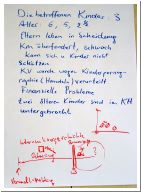 Die betroffenen Kinder: 3
Alter: 6, 5, 2½
Eltern leben in Scheidung
KM überfordert, schwach
kann sich u. Kinder nicht
schützen
KV wurde wegen Kinderporno-
graphie (Handel) verurteilt
Finanzielle Probleme
zwei ältere Kinder sind in KH
untergebracht
?